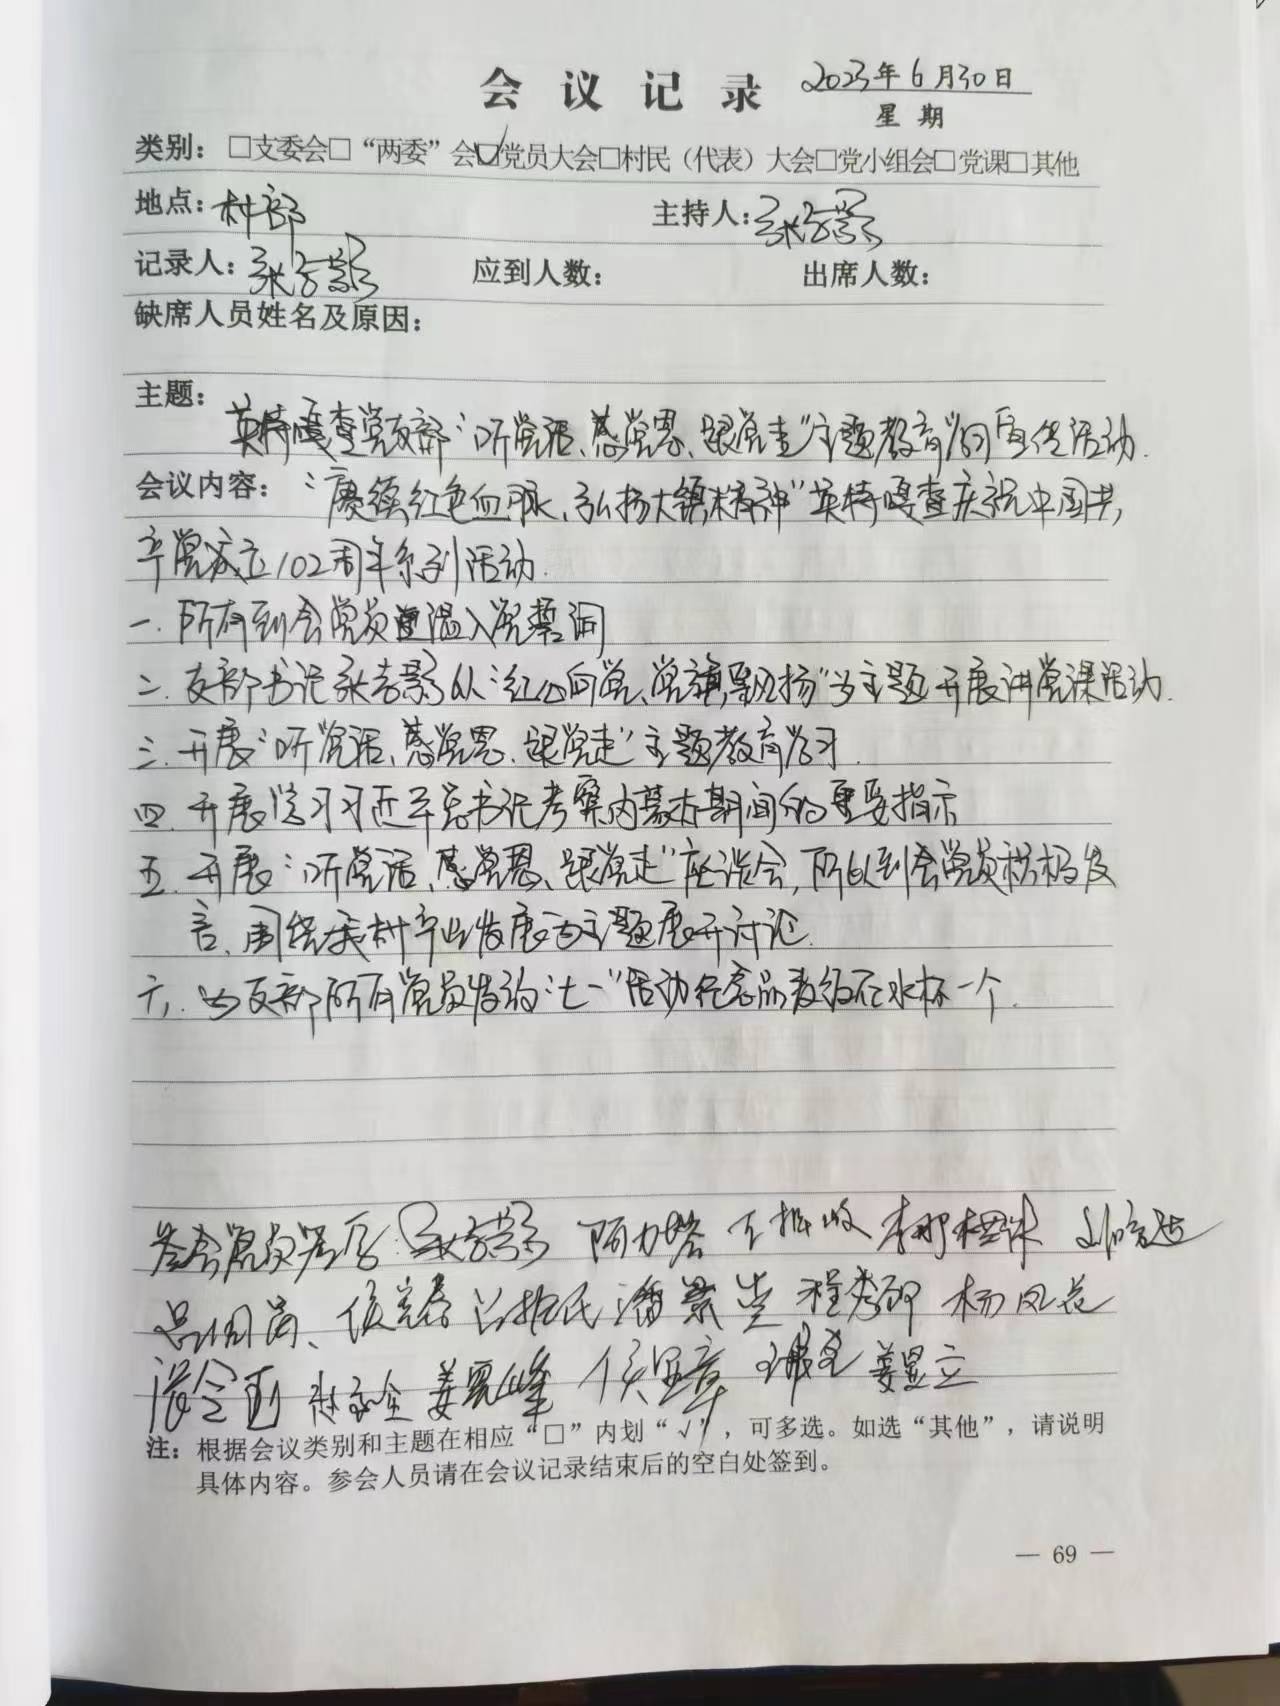 会议记录 2023年6月30日
星期
类别：□支委会□“两委”会☑党员大会□村民（代表）大会□党小组会□党课□其他
地点：村部 主持人：
记录人： 应到人数： 出席人数：
缺席人员姓名及原因：
主题：
英特嘎查党支部“听党话、感党恩、跟党走”主题教育学习宣传活动.
会议内容：“赓续红色血脉、弘扬大镇精神”英特嘎查庆祝中国共
产党成立102周年系列活动.
一. 所有到会党员重温入党誓词
二. 支部书记张志影从“红心向党、党旗飘扬”为主题开展讲党课活动.
三. 开展“听党话、感党恩、跟党走”主题教育学习.
四. 开展学习习近平总书记考察内蒙古期间的重要指示
五. 开展“听党话、感党恩、跟党走”座谈会, 所以到会党员积极发
言、围绕我村产业发展为主题展开讨论.
六. 为支部所有党员发的“七一”活动纪念品 水杯一个.
参会党员签字： 阿力塔
侯宪春 程秀郎 杨凤花
姜显峰 侯显章 姜显立
注：根据会议类别和主题在相应“□”内划“√”，可多选。如选“其他”，请说明
具体内容。参会人员请在会议记录结束后的空白处签到。
— 69 —